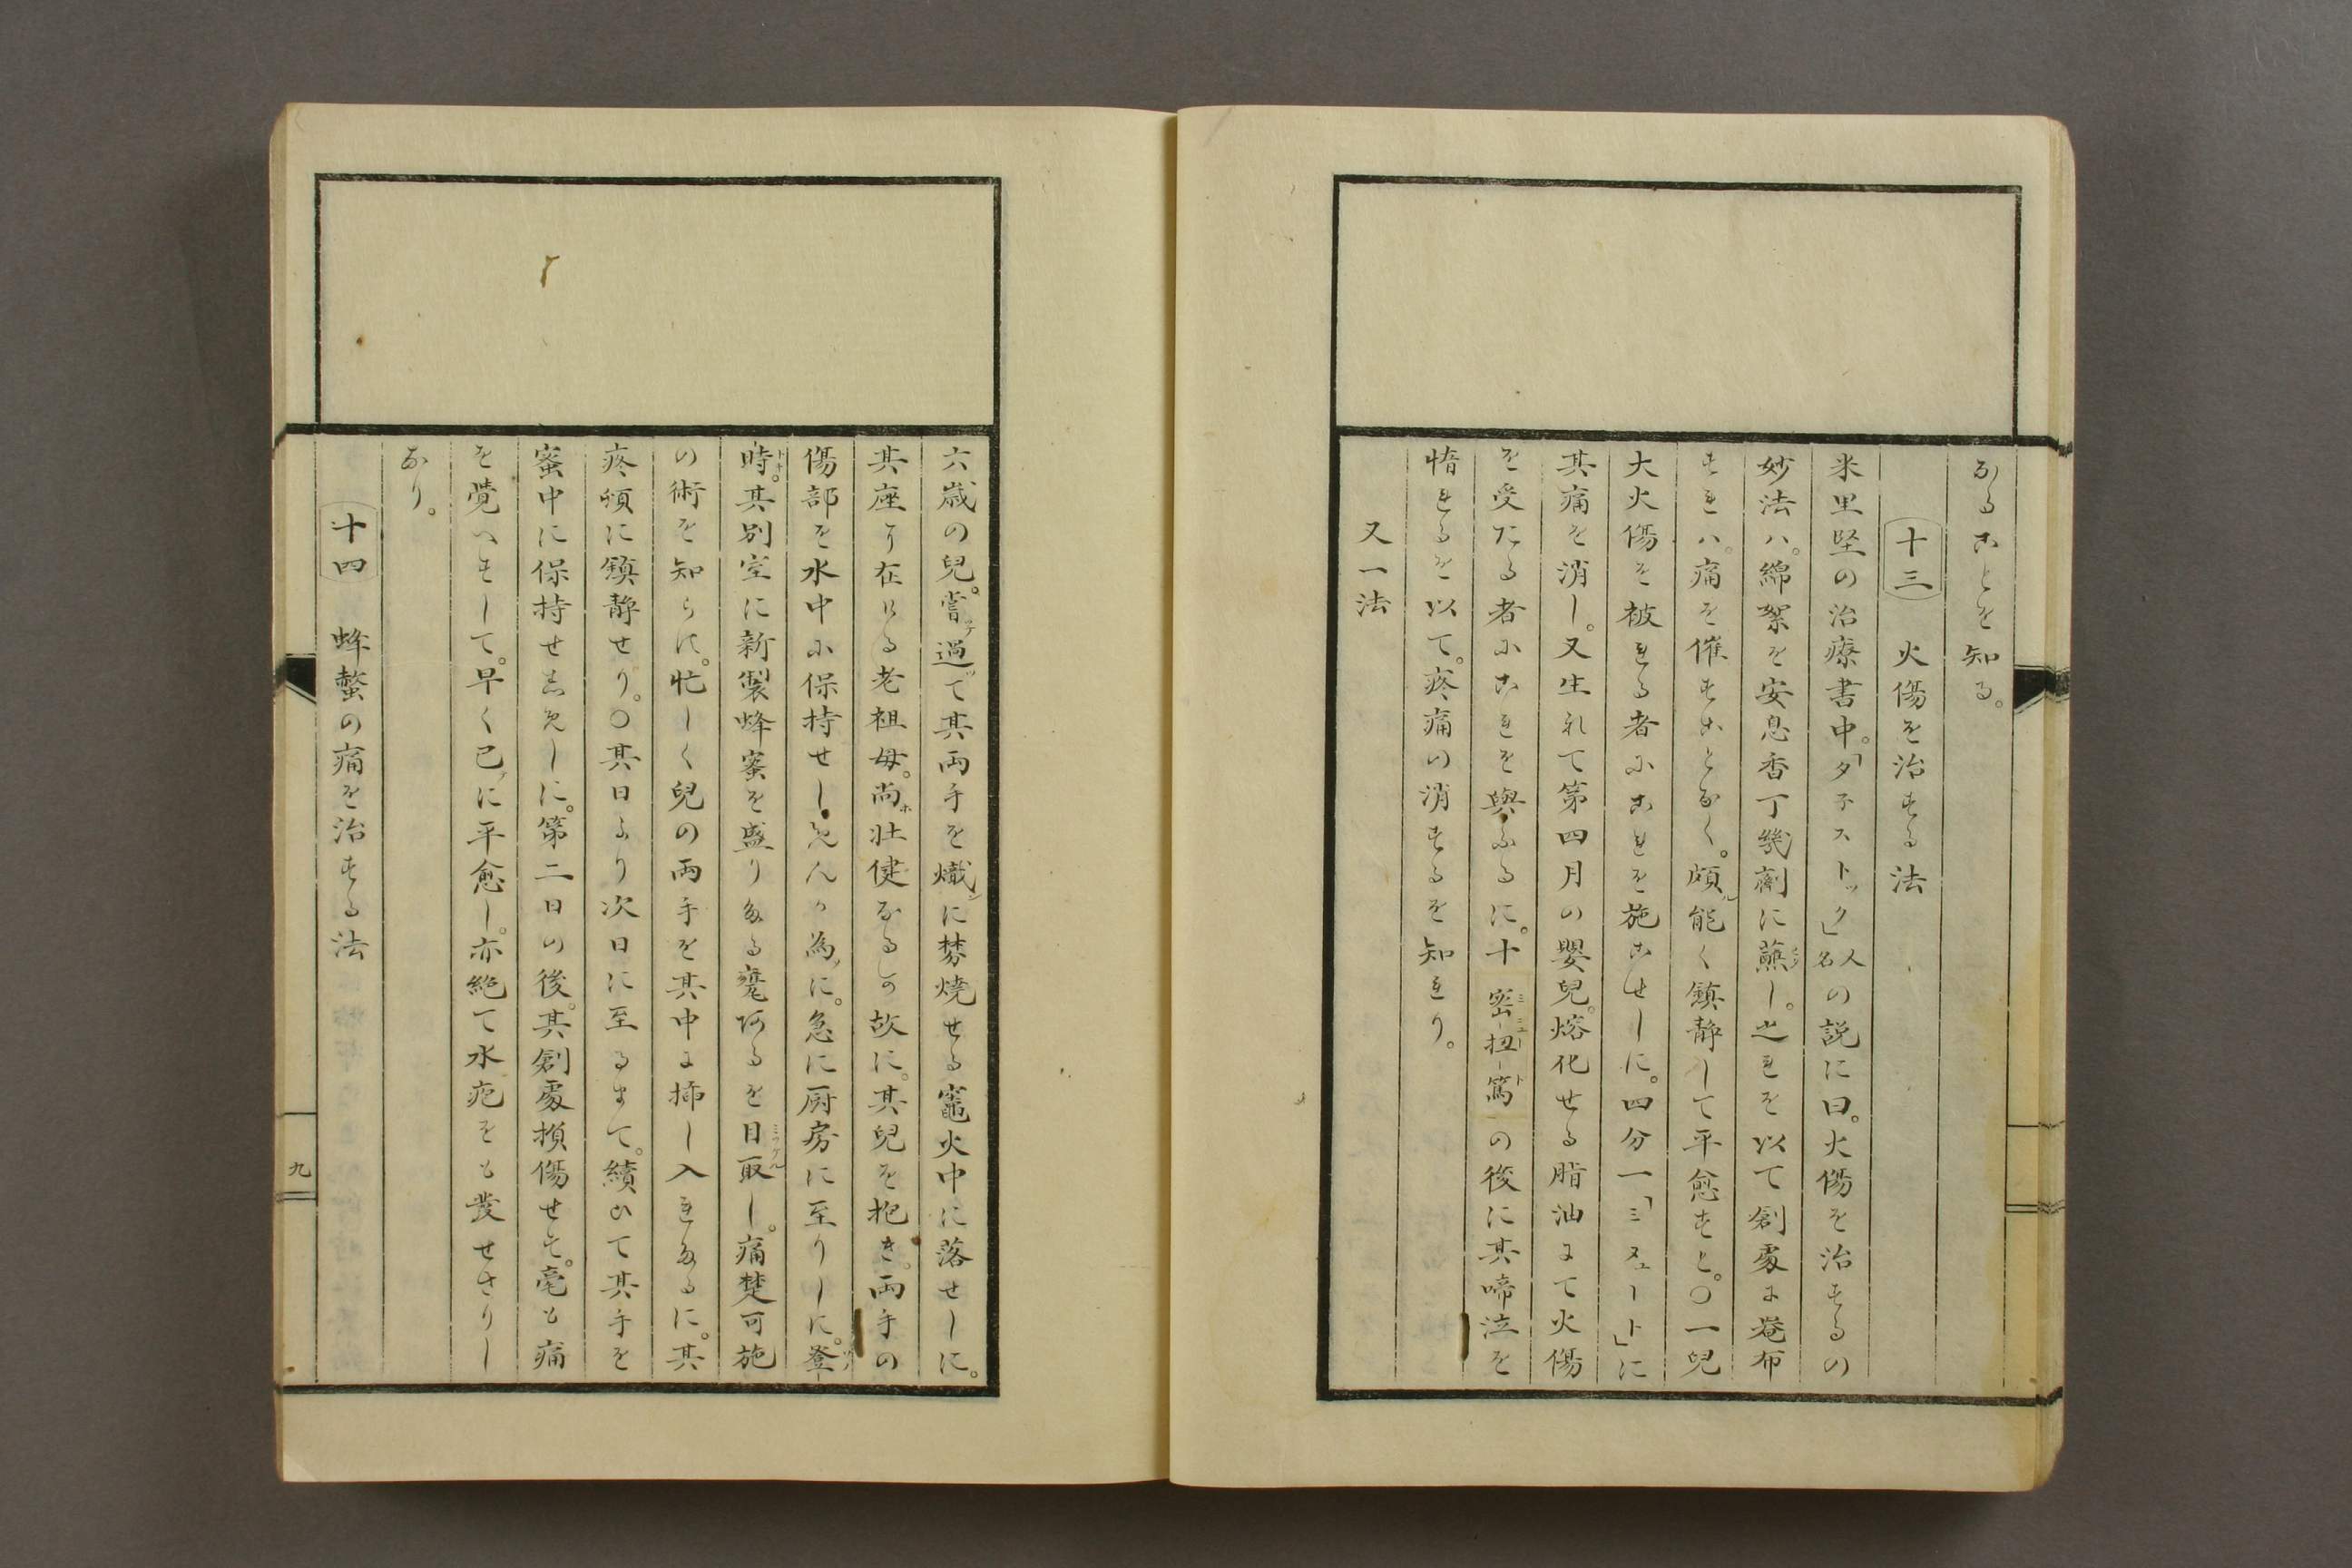 なることを知る。
十三 火傷を治する法
米里堅の治療書中。「タネストック」人名の説に曰。火傷を治するの
妙法ハ。綿絮を安息香丁幾劑に蘸し。之れを以て創處に菴布
すれハ。痛を催すことなく。頗ル能く鎮静して平愈すと。〇一兒
大火傷を被れる者にこれを施こせしに。四分一「ミニュート」に
其痛を消し。又生れて第四月の嬰兒。熔化せる脂油にて火傷
を受たる者にこれを與ふるに。十密扭篤ミニュートの後に其啼泣を
惰れるを以て。疼痛の消するを知れり。
又一法
六歳の兒。嘗テ過ッて其両手を熾ンに棼焼せる竈火中に落せしに。
其座に在ける老祖母。尚ホ壮健なるの故に。其兒を抱き。両手の
傷部を水中に保持せしめんカ為メに。急に厨房に至りしに。登
時トキ。其別室に新製蜂蜜を盛りたる甕阿るを目取ミツケルし。痛楚可施
の術を知らに。忙しく兒の両手を其中に挿し入れたるに。其
疼頓に鎮静せり。〇其日より次日に至るまて。續ひて其手を
蜜中に保持せしめしに。第二日の後。其創處損傷せす。毫も痛
を覚へすして。早く已ニに平愈し。亦絶て水疱をも發せさりし
なり。
十四 蜂螫の痛を治する法
九